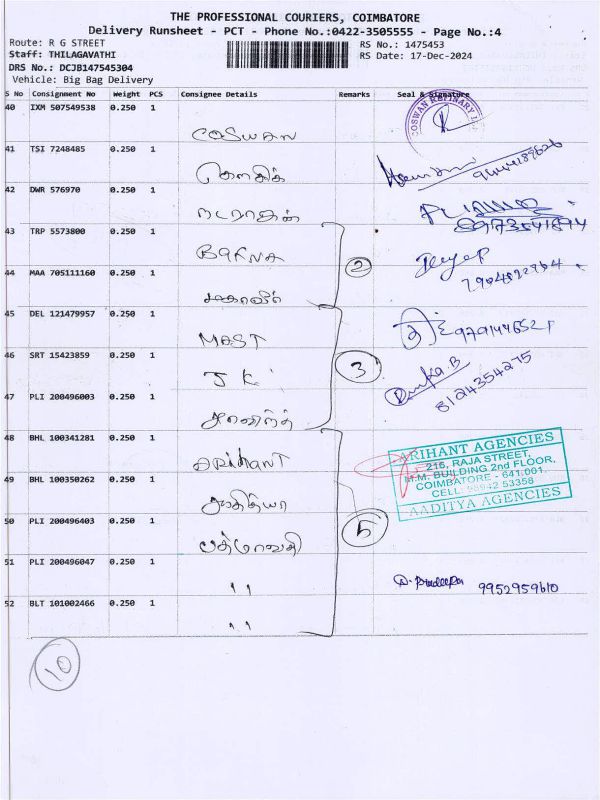 THE PROFESSIONAL COURIERS, COIMBATORE
Delivery Runsheet - PCT - Phone No.:0422-3505555 - Page No.:4
Route: R G STREET
Staff: THILAGAVATHI
DRS No.: DCJB147545304
Vehicle: Big Bag Delivery
RS No.: 1475453
RS Date: 17-Dec-2024
S No Consignment No Weight PCS Consignee Details Remarks Seal & Signature
40 IXM 507549538 0.250 1
COSWAN
41 TSI 7248485 0.250 1
கௌசிக்
42 DWR 576970 0.250 1
நடராஜன்
43 TRP 5573800 0.250 1
44 MAA 705111160 0.250 1
2
7904892964
45 DEL 121479957 0.250 1
MAST
46 SRT 15423859 0.250 1
J K
3
8124354275
47 PLI 200496003 0.250 1
48 BHL 100341281 0.250 1
ARIHANT
ARIHANT AGENCIES
215, RAJA STREET,
M.M. BUILDING 2nd FLOOR,
COIMBATORE - 641 001.
CELL: 98942 53358
AADITYA AGENCIES
49 BHL 100350262 0.250 1
ஆதித்யா
5
50 PLI 200496403 0.250 1
பத்மாவதி
51 PLI 200496047 0.250 1
"
D. Pradeepa 9952959610
52 BLT 101002466 0.250 1
"
10